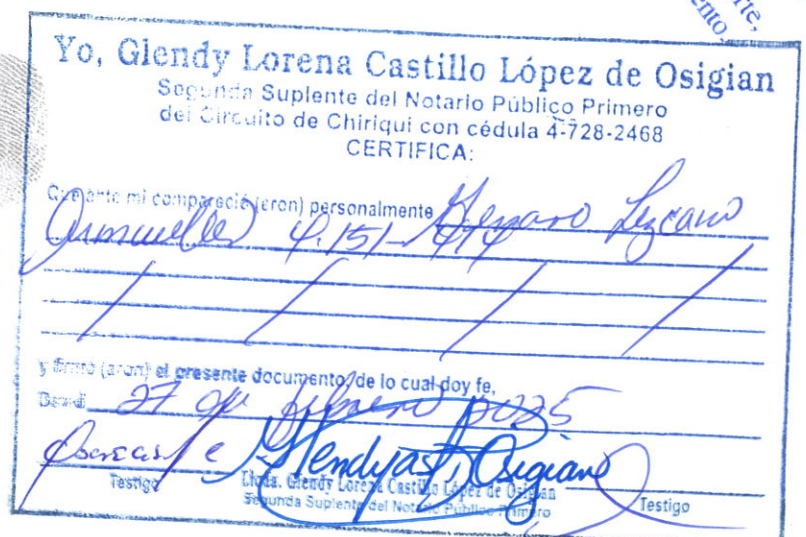 Yo, Glendy Lorena Castillo López de Osigian
Segunda Suplente del Notario Público Primero
del Circuito de Chiriqui con cédula 4-728-2468
CERTIFICA:
Que ante mi compareció (eron) personalmente Genaro Lezcano
4-151-474
y firmo (aron) el presente documento, de lo cual doy fe,
David 27 de febrero 2025
Testigo
Licda. Glendy Lorena Castillo López de Osigian
Segunda Suplente del Notario Público Primero
Testigo